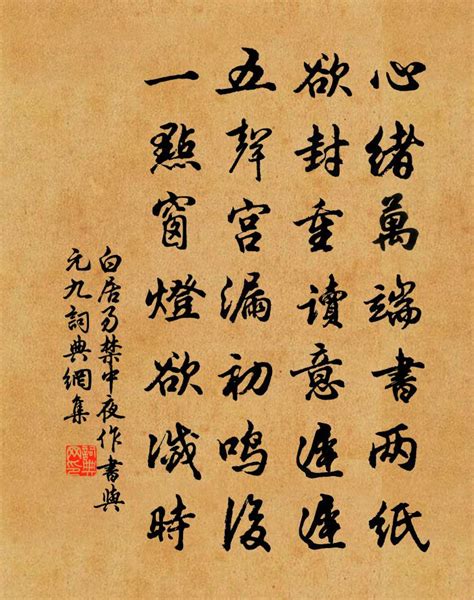 心緒萬端書兩紙
欲封重讀意遲遲
五聲宫漏初鳴後
一點窗燈欲滅時
白居易禁中夜作書與
元九詞典網集